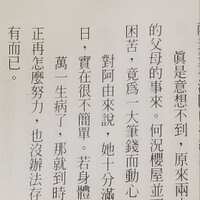 眞是意想不到，原來兩
的父母的事來。何況櫻屋並
困苦，竟爲一大筆錢而動心
對阿由來說，她十分滿
日，實在很不簡單。若身體
萬一生病了，那就到時
正再怎麼努力，也沒辦法存
有而已。